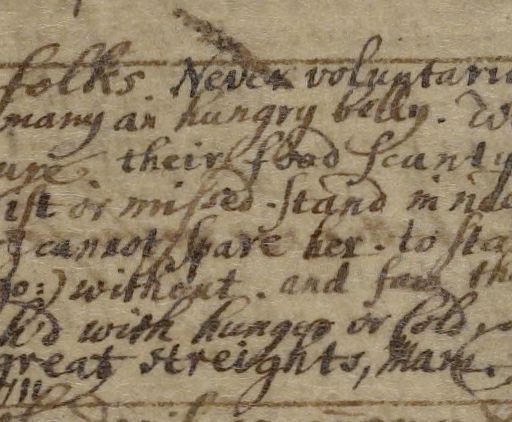 folks. Never voluntari
many an hungry belly. W
ure, their food scanty
ist or missed. stand in nee
I cannot spare her. to sta
go:) without. and
with hunger or Cold,
great streights, Mark.